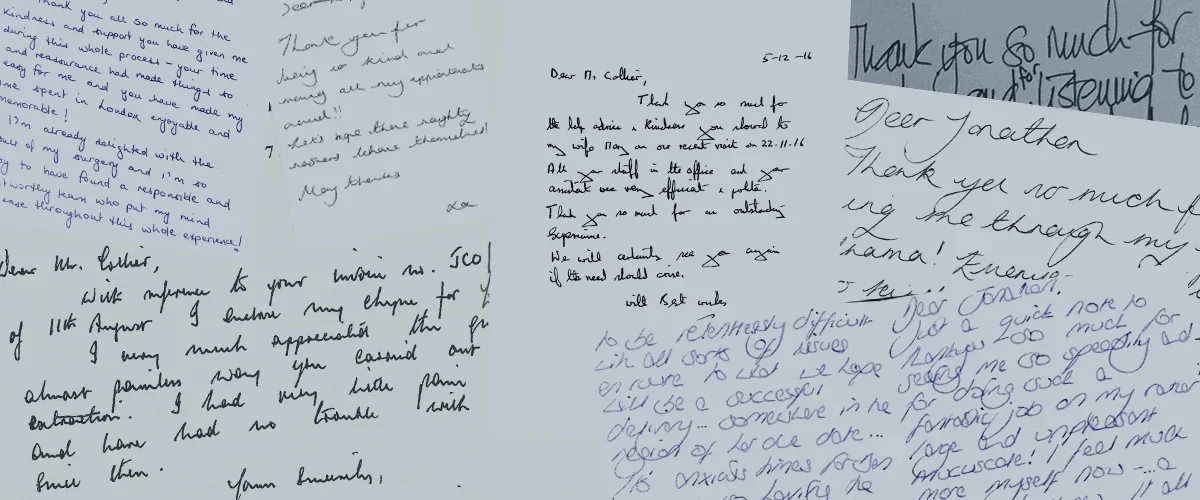 Thank you all so much for the
kindness and support you have given me
during this whole process – your time
and reassurance had made things so
easy for me and you have made my
time spent in London enjoyable and
memorable!
I'm already delighted with the
of my surgery and I'm so
to have found a responsible and
trustworthy team who put my mind
ease throughout this whole experience!
Thank you for
being so kind and
moving all my appointments
around!!
Let's hope those naughty
behave themselves!
Many thanks
xx
5-12-16
Dear Mr. Collier,
Thank you so much for
the help advice & kindness you showed to
my wife May on our recent visit on 22.11.16
All your staff in the office and your
assistant were very efficient & polite.
Thank you so much for an outstanding
experience.
We will certainly see you again
if the need should arise.
with Best wishes,
Thank you so much for
for listening to
Dear Jonathan
Thank you so much f
ing me through my
Dear Mr. Collier,
With reference to your invoice no. JCO
of 11th August I enclose my cheque for
I very much appreciated the
almost painless way you carried out
extraction. I had very little pain
and have had no trouble with
since then.
Yours Sincerely,
Dear Jonathan.
Just a quick note to
thankyou sooo much for
seeing me so speedily and
for doing such a
fantastic job on my rather
large and unpleasant
mucuscoele! I feel much
more myself now -...a
it all
to be relentlessly difficult
with all sorts of issues
en route to what we hope
will be a successful
delivery... somewhere in the
region of her due date...